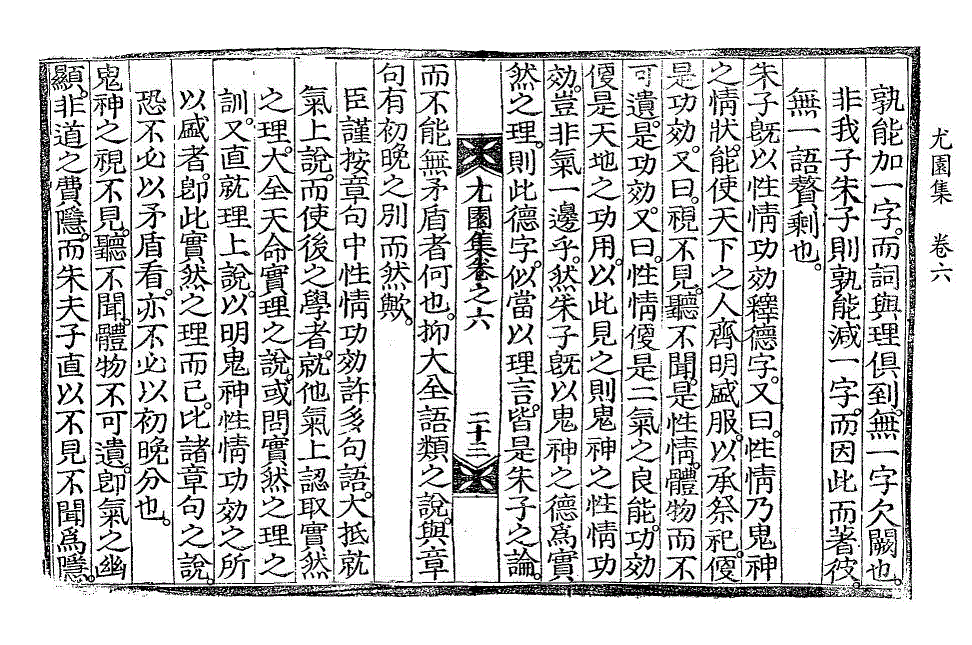 尤園集　卷六
孰能加一字。而詞與理俱到。無一字欠闕也。
非我子朱子則孰能減一字。而因此而著彼。
無一語贅剩也。
朱子旣以性情功效釋德字。又曰。性情乃鬼神
之情狀。能使天下之人齊明盛服。以承祭祀。便
是功效。又曰。視不見。聽不聞。是性情。體物而不
可遺。是功效。又曰。性情便是二氣之良能。功效
便是天地之功用。以此見之則鬼神之性情功
效。豈非氣一邊乎。然朱子旣以鬼神之德爲實
然之理。則此德字。似當以理言。皆是朱子之論。
尤園集卷之六　二十三
而不能無矛盾者何也。抑大全語類之說。與章
句有初晩之別而然歟。
臣謹按章句中性情功效許多句語。大抵就
氣上說。而使後之學者。就他氣上認取實然
之理。大全天命實理之說。或問實然之理之
訓。又直就理上說。以明鬼神性情功效之所
以盛者。卽此實然之理而已。比諸章句之說。
恐不必以矛盾看。亦不必以初晩分也。
鬼神之視不見。聽不聞。體物不可遺。卽氣之幽
顯。非道之費隱。而朱夫子直以不見不聞爲隱。